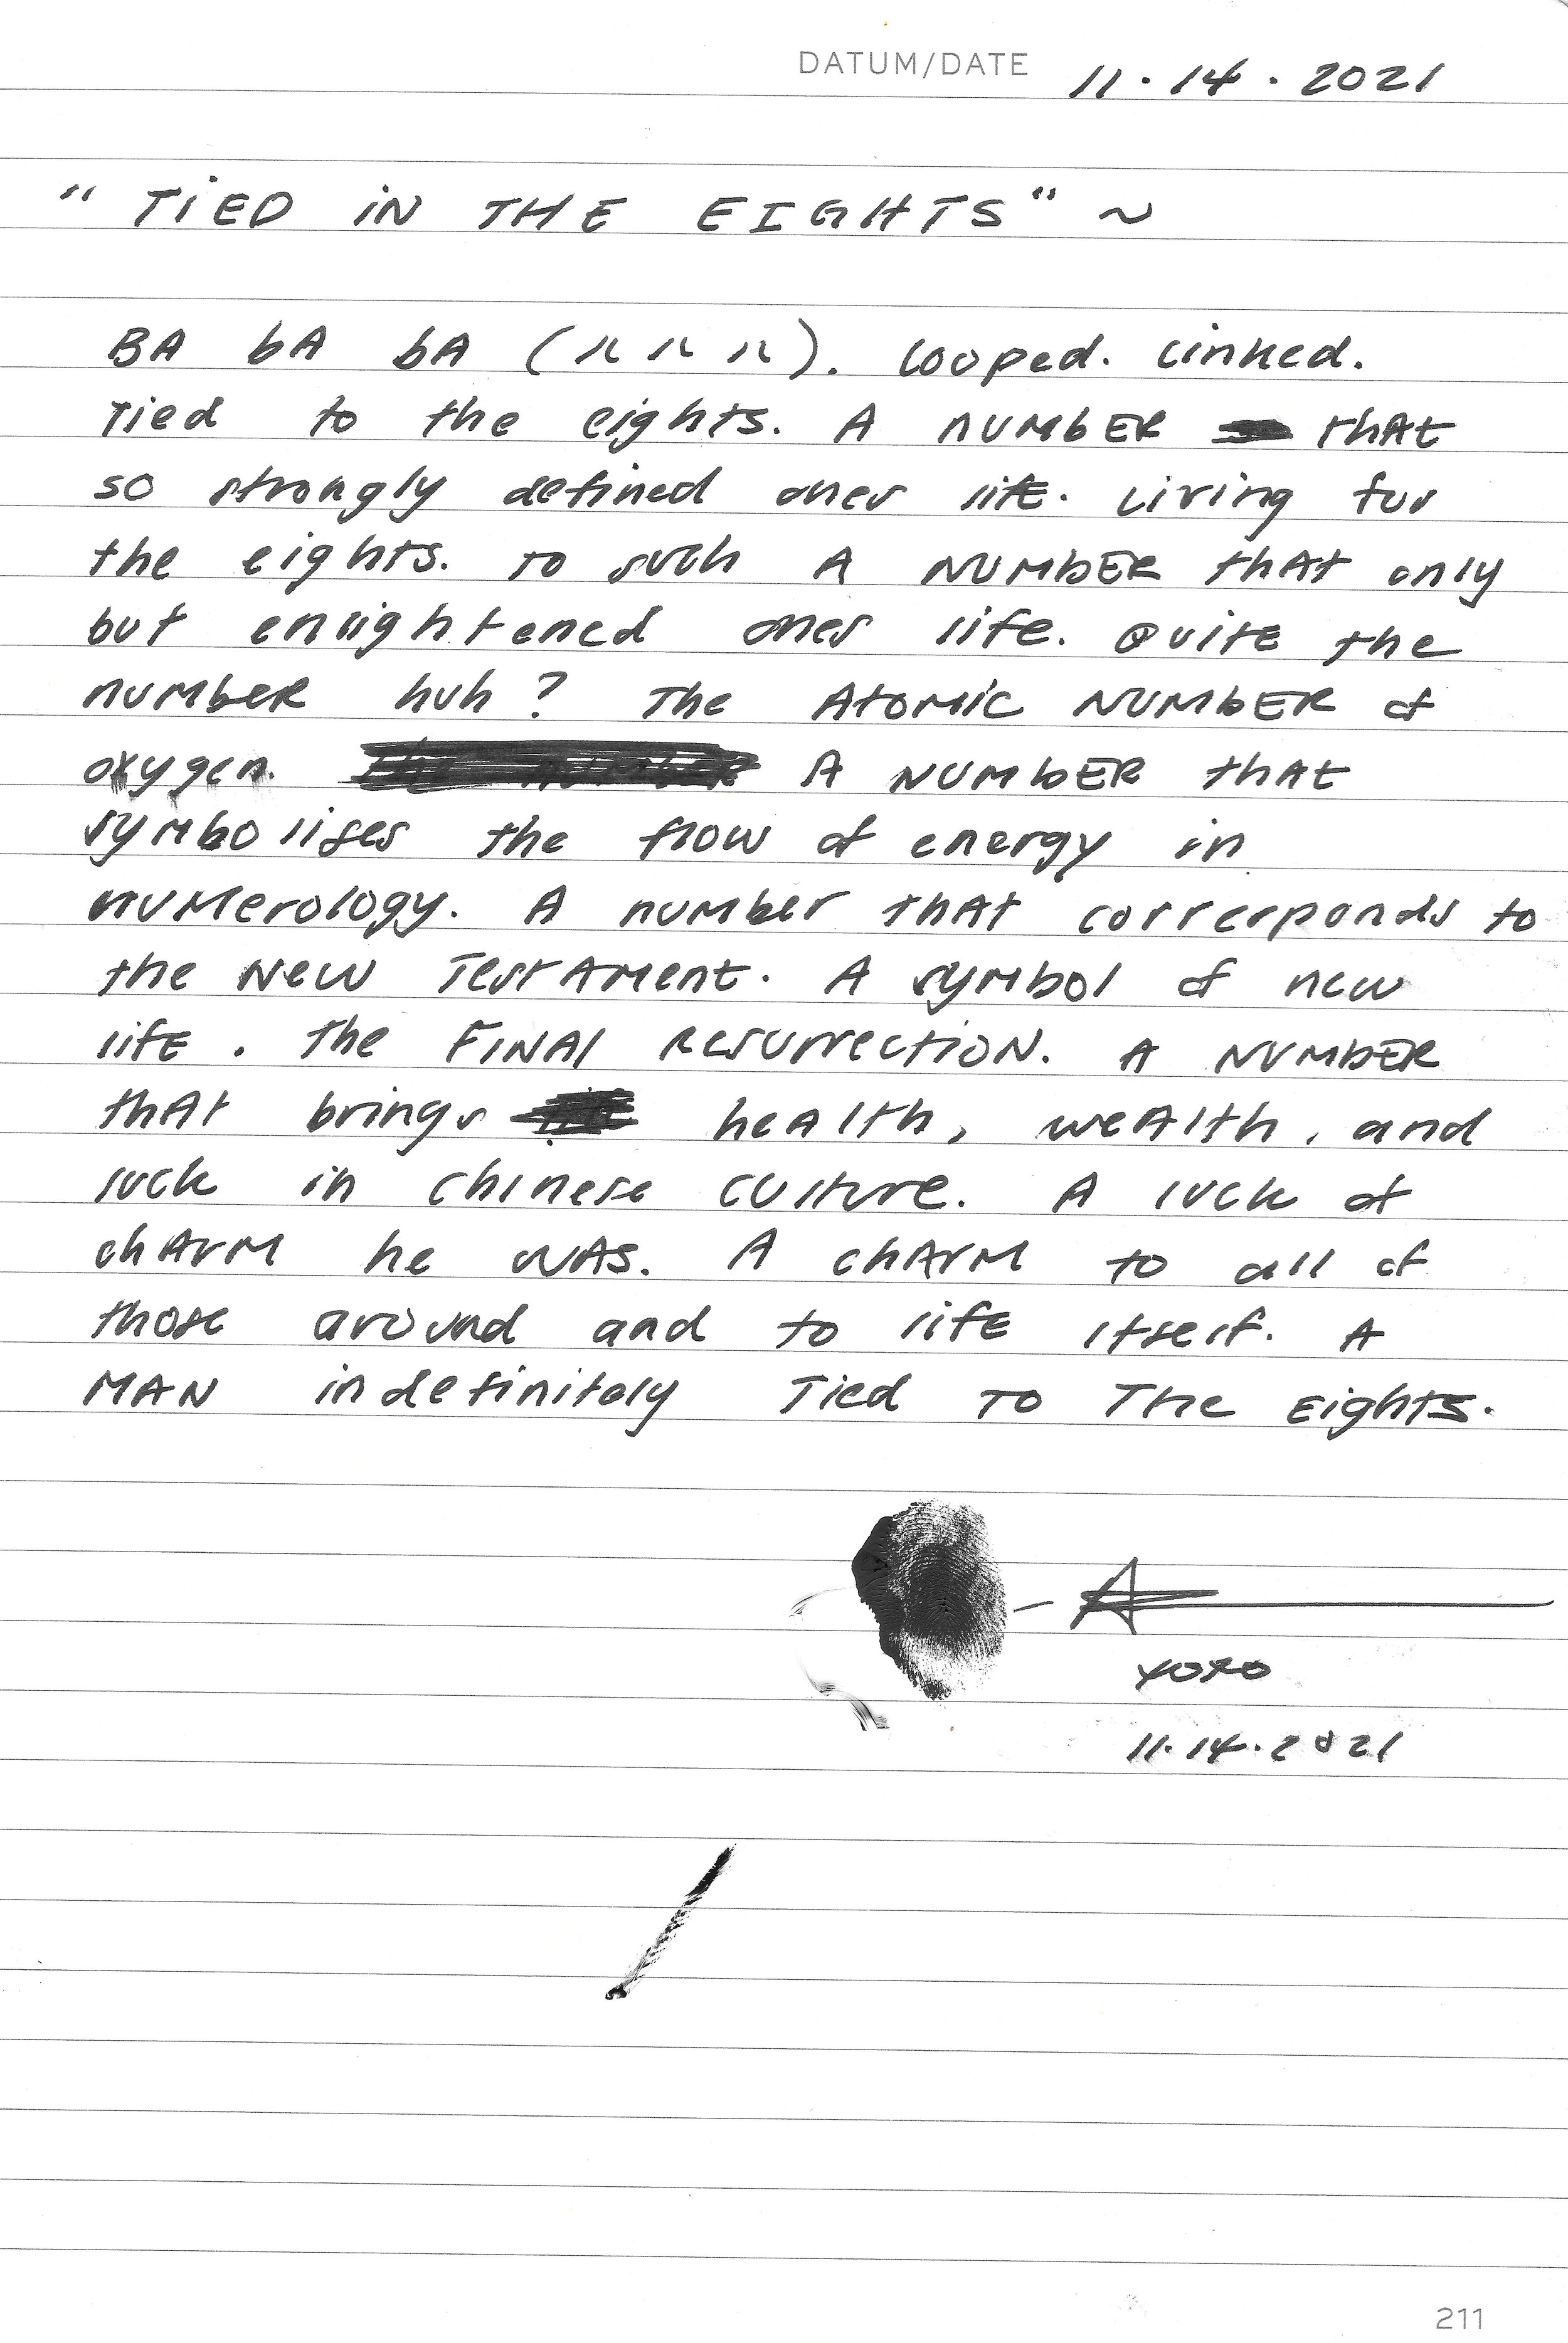 DATUM/DATE 11.14.2021
"TiED iN THE EIGHTS" ~
BA bA bA (八 八 八). Looped. Linked.
Tied to the eights. A NUMbER thAt
so strongly defined ones lifE. Living for
the eights. To such A NUMbER thAt only
but enlightened ones life. QuitE the
nuMbER huh? The AtoMic NUMbER of
oxygen. A NUMbER thAt
syMbolises the flow of energy in
nuMerology. A nuMber thAt corresponds to
the New TestAMent. A syMbol of new
lifE. The FiNAl ResurrectioN. A NUMbER
thAt brings heAlth, weAlth, and
luck in Chinese culture. A luck of
chArM he wAs. A chArM to all of
those around and to lifE itself. A
MAN indefinitely Tied To The Eights.
- A
xoxo
11.14.2021
211